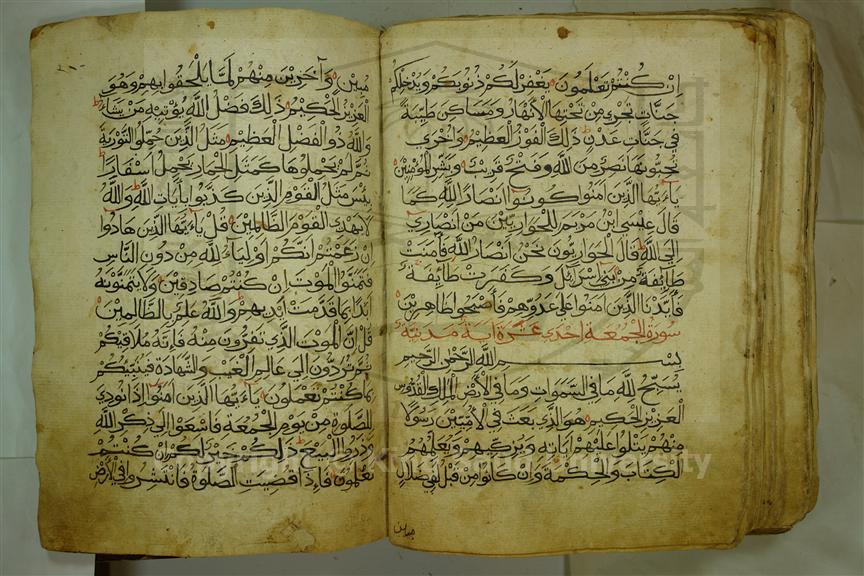 ان كنتم تعلمون يغفر لكم ذنوبكم ويدخلكم
جنات تجري من تحتها الانهار ومساكن طيبة
في جنات عدن ذلك الفوز العظيم واخرى
تحبونها نصر من الله وفتح قريب وبشر المؤمنين
ياءيها الذين امنوا كونوا انصار الله كما
قال عيسى ابن مريم للحواريين من انصاري
الى الله قال الحواريون نحن انصار الله فآمنت
طائفة من بني اسرائيل وكفرت طائفة
فأيدنا الذين امنوا على عدوهم فأصبحوا ظاهرين
سورة الجمعة احدى عشرة اية مدنية
بسم الله الرحمن الرحيم
يسبح لله ما في السموات وما في الارض الملك القدوس
العزيز الحكيم هو الذي بعث في الاميين رسولا
منهم يتلوا عليهم اياته ويزكيهم ويعلمهم
الكتاب والحكمة وان كانوا من قبل لفي ضلال
مبين واخرين منهم لما يلحقوا بهم وهو
العزيز الحكيم ذلك فضل الله يؤتيه من يشاء
والله ذو الفضل العظيم مثل الذين حملوا التورية
ثم لم يحملوها كمثل الحمار يحمل اسفارا
بئس مثل القوم الذين كذبوا بأيات الله والله
لا يهدي القوم الظالمين قل ياءيها الذين هادوا
ان زعمتم انكم اولياء لله من دون الناس
فتمنوا الموت ان كنتم صادقين ولا يتمنونه
ابدا بما قدمت ايديهم والله عليم بالظالمين
قل ان الموت الذي تفرون منه فإنه ملاقيكم
ثم تردون الى عالم الغيب والشهادة فينبئكم
بما كنتم تعملون ياءيها الذين امنوا اذا نودي
للصلوة من يوم الجمعة فاسعوا الى ذكر الله
وذروا البيع ذلكم خير لكم ان كنتم
تعلمون فإذا قضيت الصلوة فانتشروا في الارض